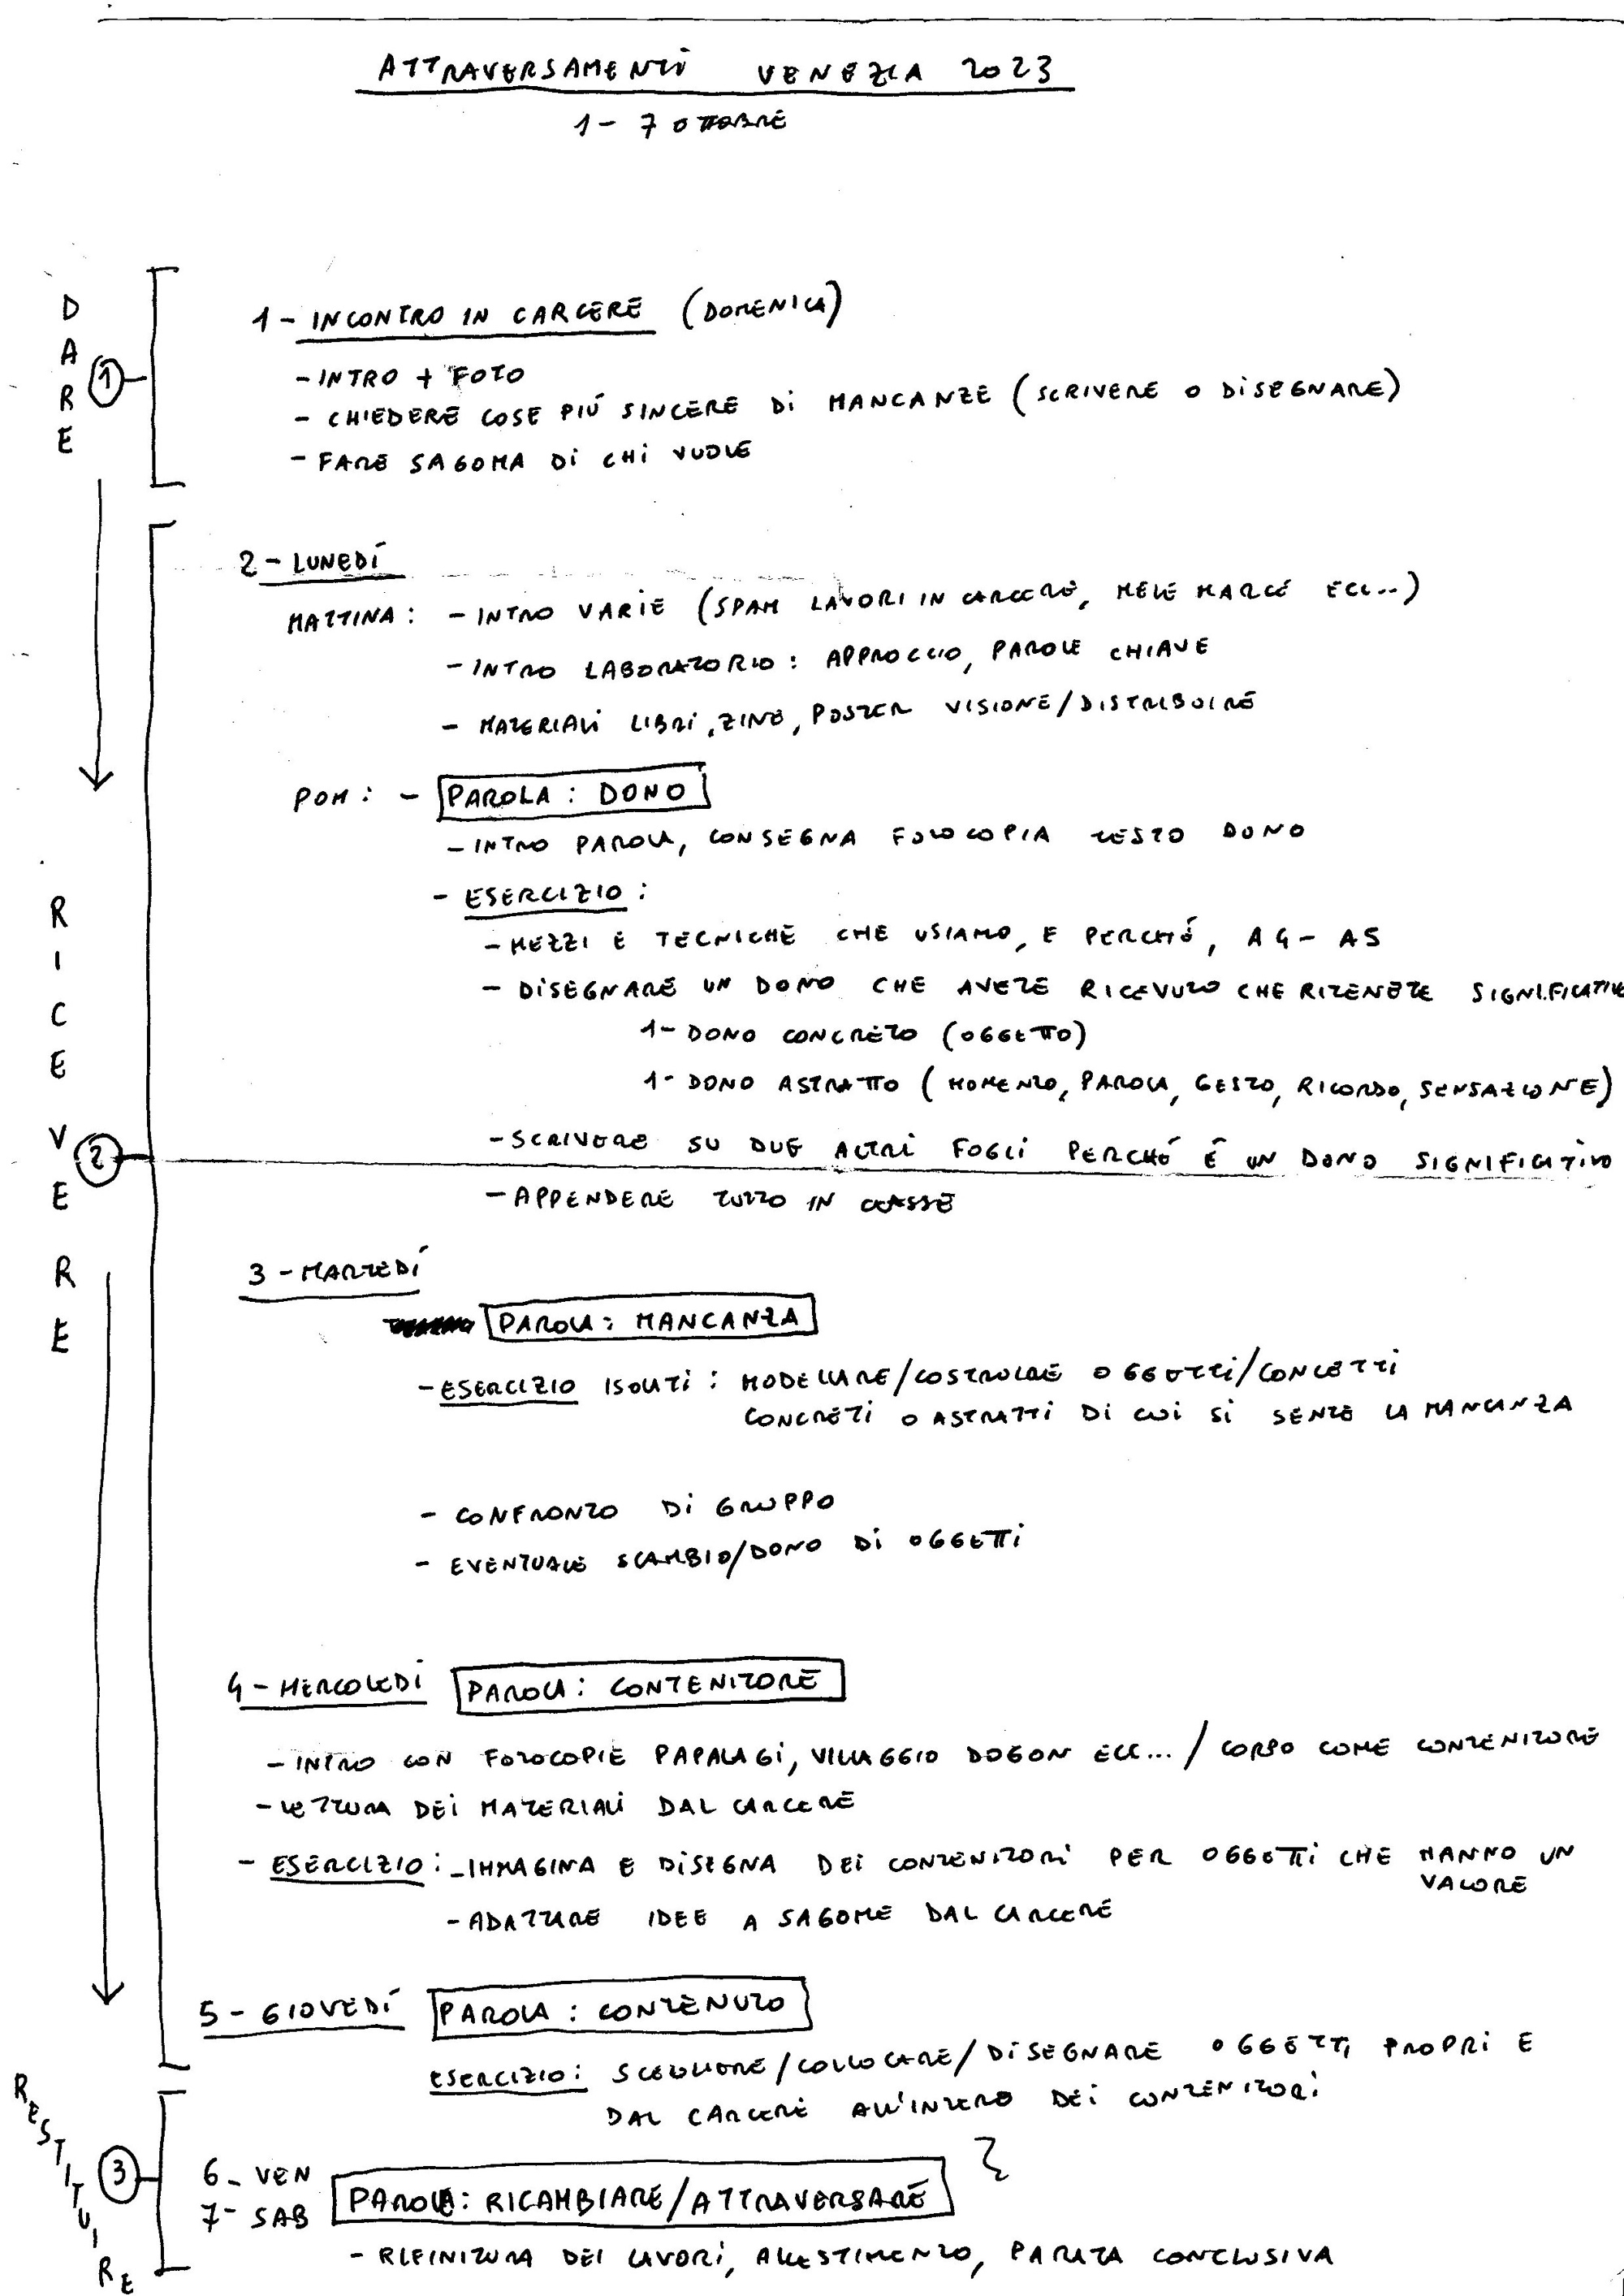 ATTRAVERSAMENTI VENEZIA 2023
1 - 7 OTTOBRE
DARE
1
1 - INCONTRO IN CARCERE (DOMENICA)
- INTRO + FOTO
- CHIEDERE COSE PIÚ SINCERE DI MANCANZE (SCRIVERE O DISEGNARE)
- FARE SAGOMA DI CHI VUOLE
RICEVERE
2
2 - LUNEDÍ
MATTINA: - INTRO VARIE (SPAM LAVORI IN CARCERE, MELE MARCE ECC...)
- INTRO LABORATORIO: APPROCCIO, PAROLE CHIAVE
- MATERIALI LIBRI, ZINE, POSTER VISIONE/DISTRIBUIRE
POM: - PAROLA: DONO
- INTRO PAROLA, CONSEGNA FOTOCOPIA TESTO DONO
- ESERCIZIO:
- MEZZI E TECNICHE CHE USIAMO, E PERCHÉ, A4 - A5
- DISEGNARE UN DONO CHE AVETE RICEVUTO CHE RITENETE SIGNIFICATIVO
1- DONO CONCRETO (OGGETTO)
1- DONO ASTRATTO (MOMENTO, PAROLA, GESTO, RICORDO, SENSAZIONE)
- SCRIVERE SU DUE ALTRI FOGLI PERCHÉ É UN DONO SIGNIFICATIVO
- APPENDERE TUTTO IN CLASSE
3 - MARTEDÍ
PAROLA: MANCANZA
- ESERCIZIO ISOLATI: MODELLARE/COSTRUIRE OGGETTI/CONCETTI
CONCRETI O ASTRATTI DI CUI SI SENTE LA MANCANZA
- CONFRONTO DI GRUPPO
- EVENTUALE SCAMBIO/DONO DI OGGETTI
4 - MERCOLEDÍ PAROLA: CONTENITORE
- INTRO CON FOTOCOPIE PAPALAGI, VILLAGGIO DOGON ECC... / CORPO COME CONTENITORE
- LETTURA DEI MATERIALI DAL CARCERE
- ESERCIZIO: - IMMAGINA E DISEGNA DEI CONTENITORI PER OGGETTI CHE HANNO UN
VALORE
- ADATTARE IDEE A SAGOME DAL CARCERE
5 - GIOVEDÍ PAROLA: CONTENUTO
ESERCIZIO: SCEGLIERE/COLLOCARE/DISEGNARE OGGETTI PROPRI E
DAL CARCERE ALL'INTERO DEI CONTENITORI
RESTITUIRE
3
6 - VEN
7 - SAB PAROLE: RICAMBIARE/ATTRAVERSARE
- RIFINITURA DEI LAVORI, ALLESTIMENTO, PARATA CONCLUSIVA